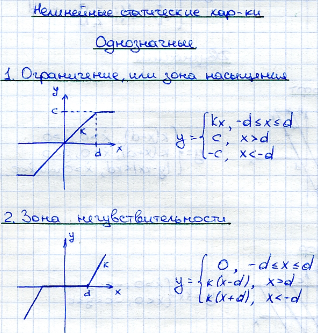 Нелинейные статические хар-ки
Однозначные
1. Ограничение, или зона насыщения
y
c
k
d
x
y = { kx, -d ≤ x ≤ d
c, x > d
-c, x < -d
2. Зона нечувствительности
y
k
d
x
y = { 0, -d ≤ x ≤ d
k(x-d), x > d
k(x+d), x < -d